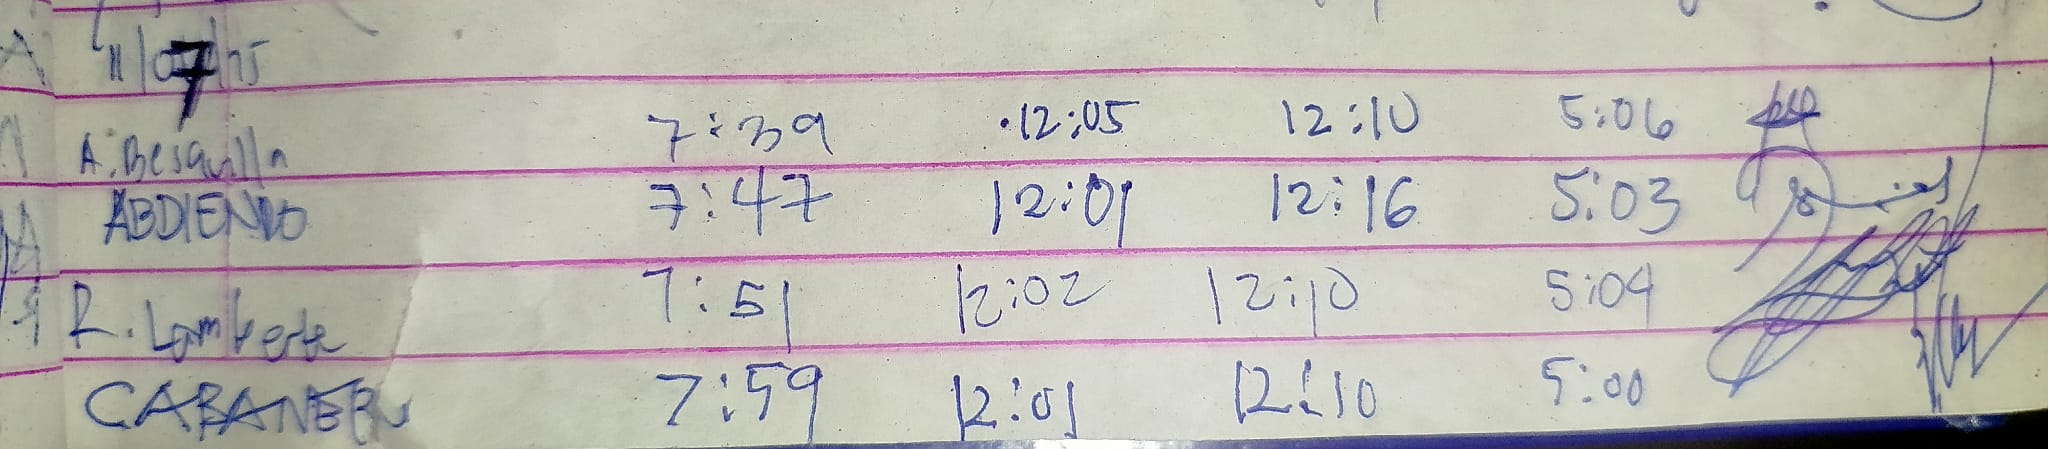 7
A. Besquilla 7:39 12:05 12:10 5:06
ABDIENDO 7:47 12:01 12:16 5:03
R. Lamberte 7:51 12:02 12:10 5:04
CABANERO 7:59 12:01 12:10 5:00